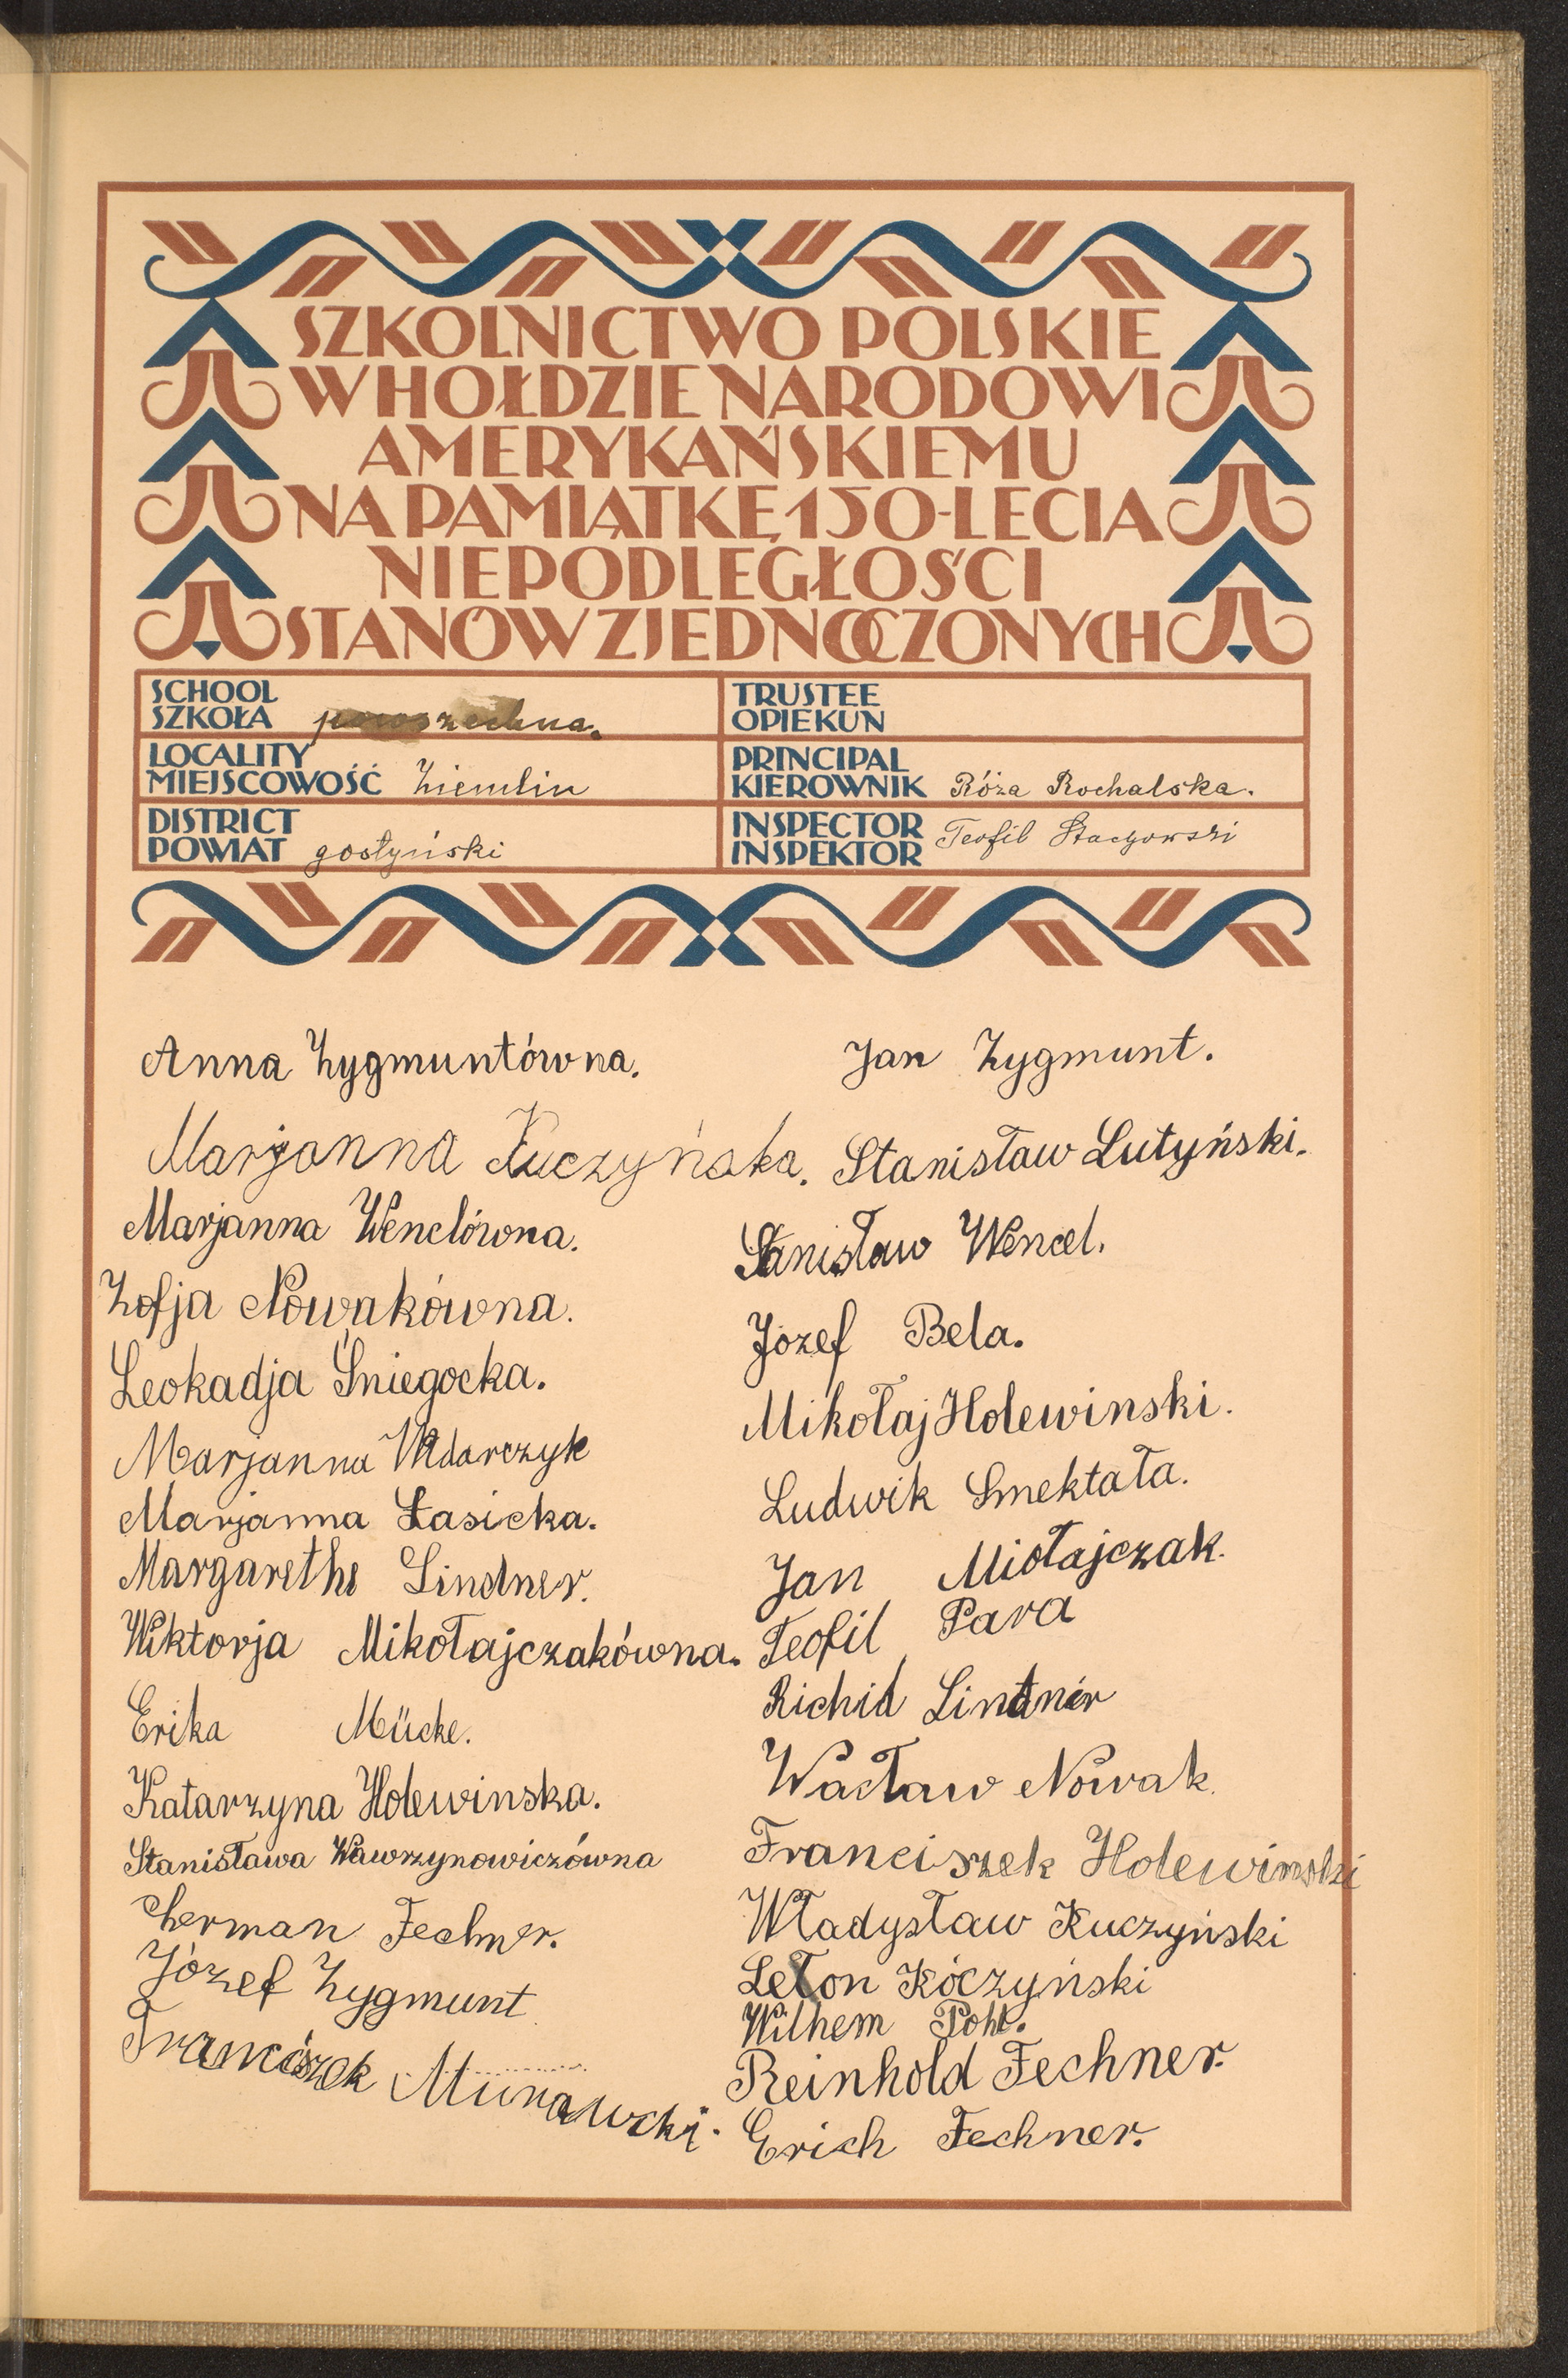 SZKOLNICTWO POLSKIE
W HOŁDZIE NARODOWI
AMERYKAŃSKIEMU
NA PAMIĄTKĘ 150-LECIA
NIEPODLEGŁOŚCI
STANÓW ZJEDNOCZONYCH
SCHOOL
SZKOŁA powszechna.
TRUSTEE
OPIEKUN
LOCALITY
MIEJSCOWOŚĆ Ziemlin
PRINCIPAL
KIEROWNIK Róża Rochalska.
DISTRICT
POWIAT gostyński
INSPECTOR
INSPEKTOR Teofil Stachowski
Anna Zygmuntówna.
Marjanna Kuczyńska.
Marjanna Wenclówna.
Zofja Nowakówna.
Leokadja Śniegocka.
Marjanna Włdarczyk
Marjanna Łasicka.
Margarethe Lindner.
Wiktorja Mikołajczakówna.
Erika Mücke.
Katarzyna Holewinska.
Stanisława Wawrzynowiczówna
Herman Fechner.
Józef Zygmunt
Franciszek Murawski.
Jan Zygmunt.
Stanisław Lutyński.
Stanisław Wencel.
Józef Bela.
Mikołaj Holewinski.
Ludwik Smektała.
Jan Miołajczak.
Teofil Para
Richid Lindner
Wacław Nowak.
Franciszek Holewinski
Władysław Kuczyński
Leon Kóczyński
Wilhem Pohl.
Reinhold Fechner.
Erich Fechner.